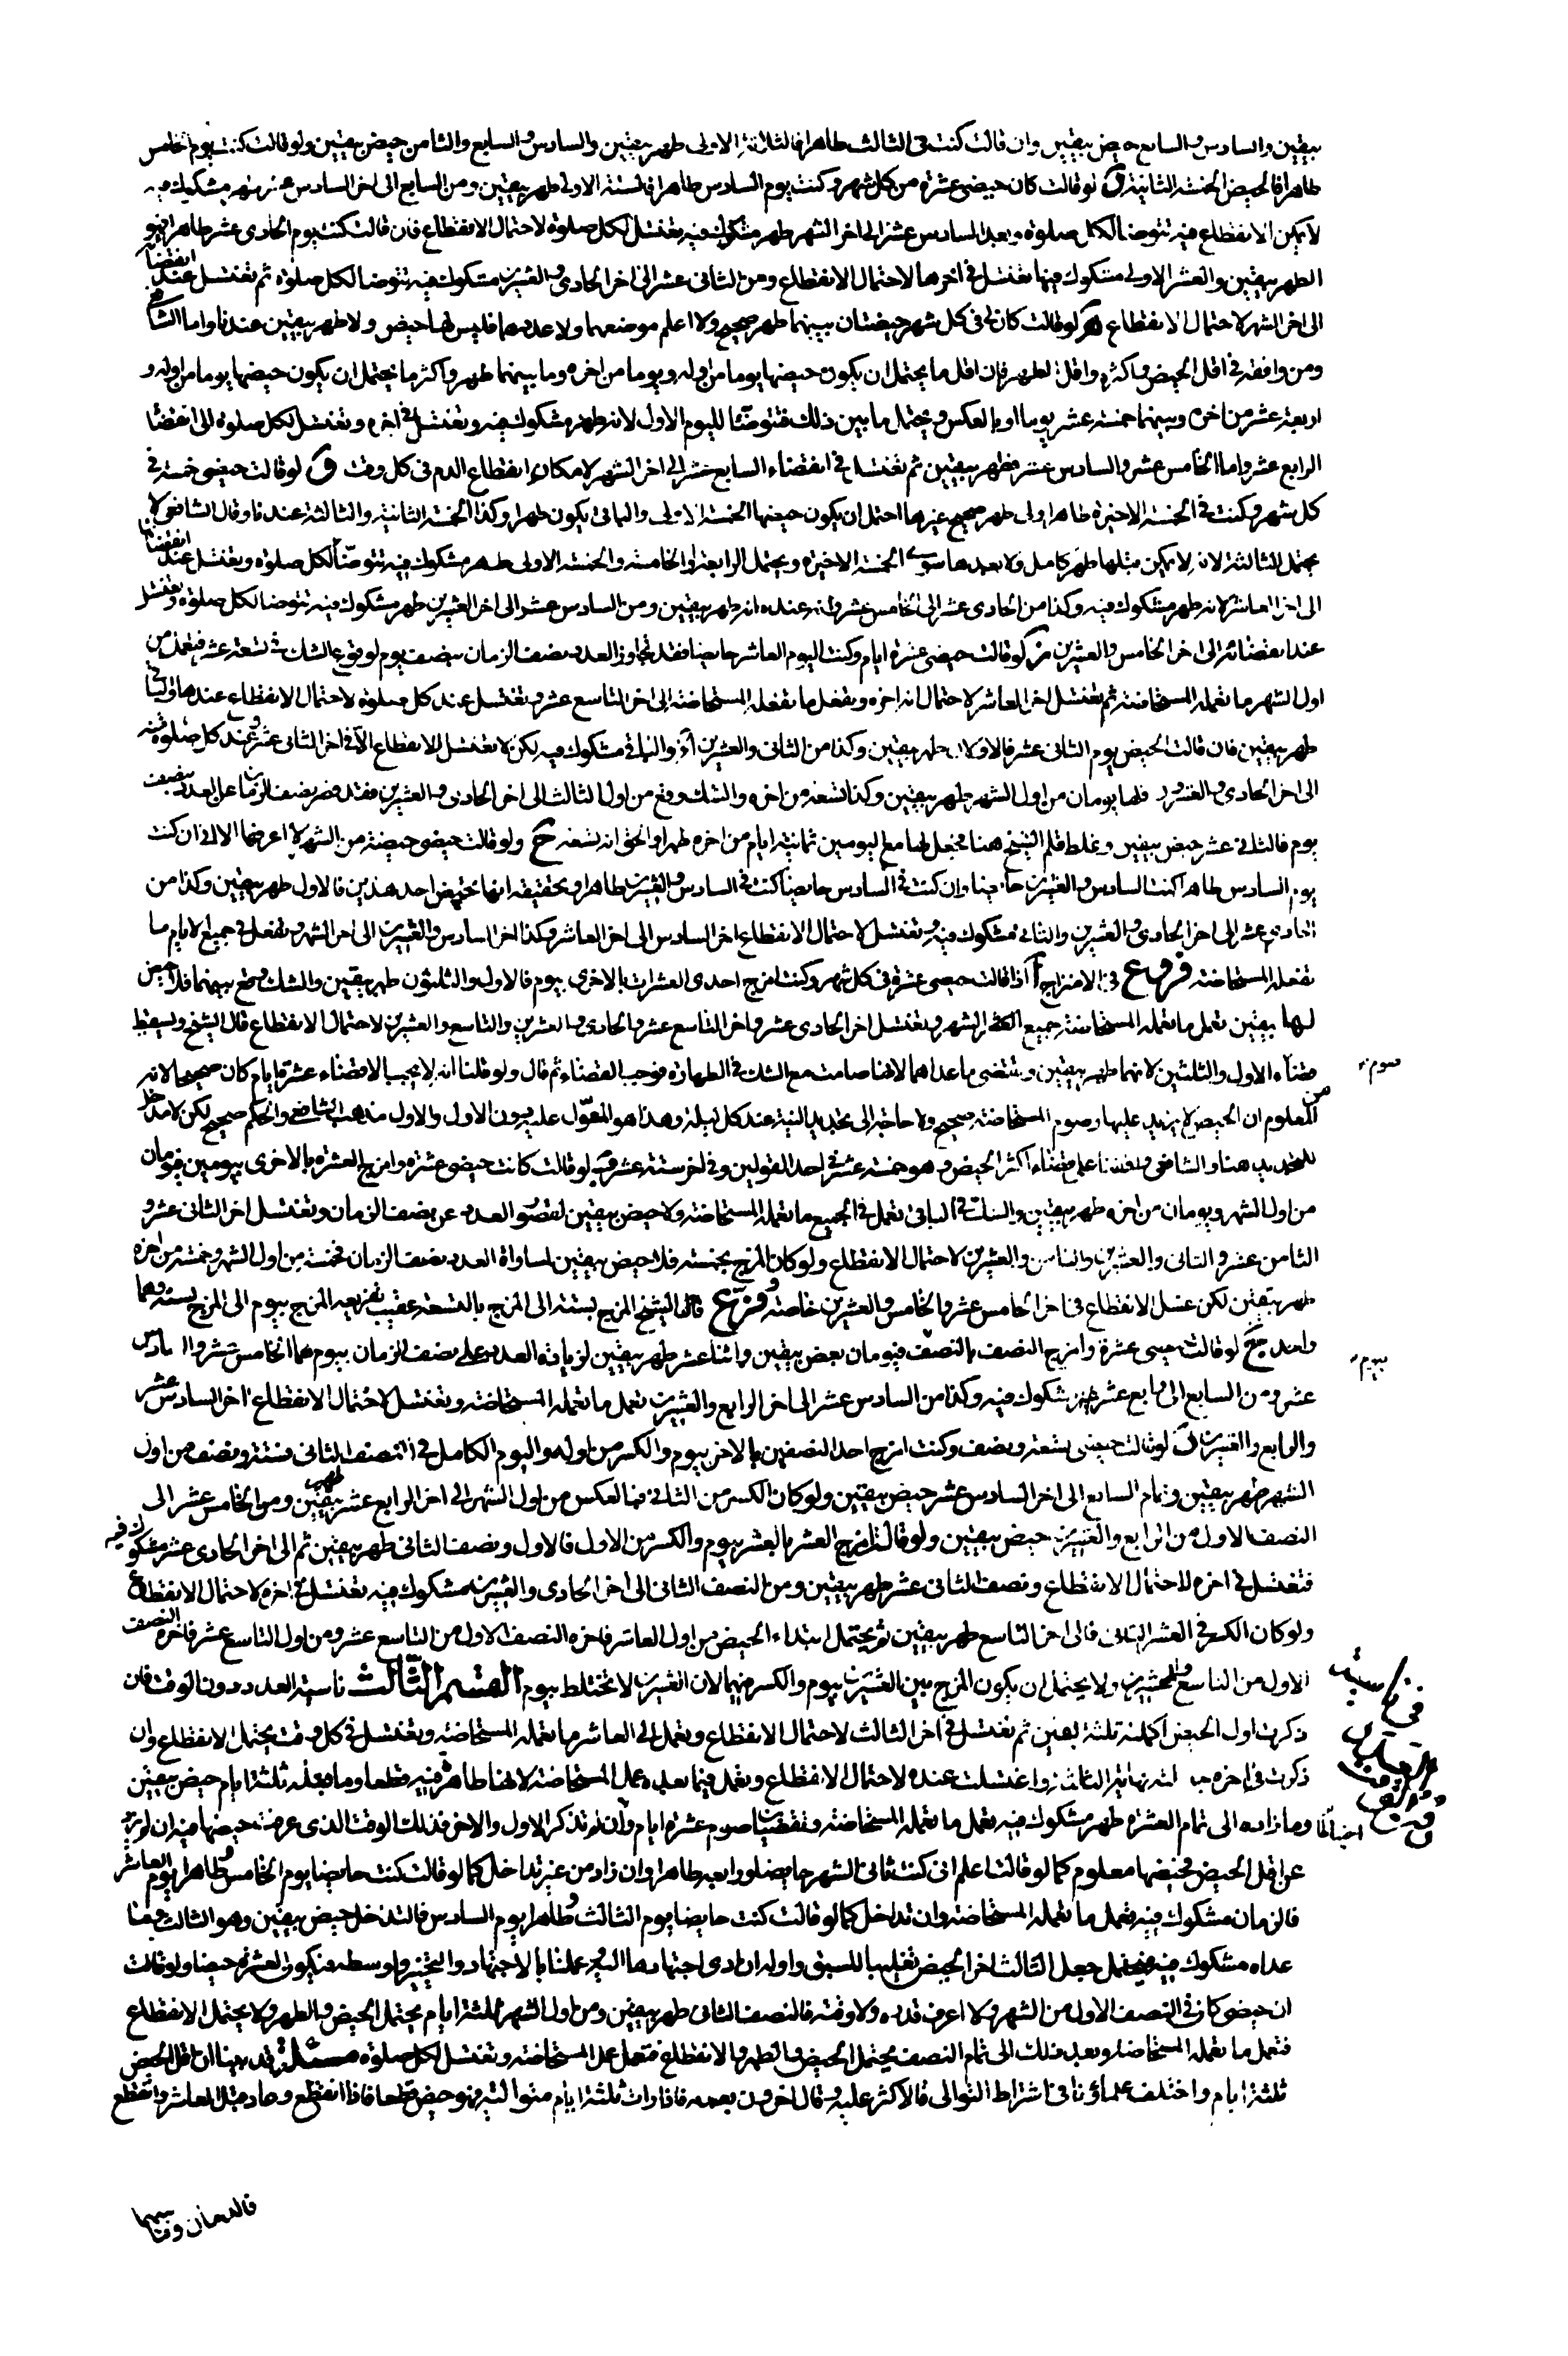 بيقين والسادس والسابع حيض بيقين وان قالت كنت فى الثالث طاهرا فالثلاثة الاولى طهر بيقين والسادس والسابع والثامن حيض بيقين ولو قالت كنت يوم الخامس
طاهرا فالحيض الخمسة الثانية لو قالت كان حيضى عشرة من كل شهر وكنت يوم السادس طاهرا فالستة الاولى طهر بيقين ومن السابع الى اخر السادس عشر طهر مشكوك فيه
لا يمكن الانقطاع فيه تتوضا لكل صلوة وبعد السادس عشر الى اخر الشهر طهر مشكوك فيه تغتسل لكل صلوة لاحتمال الانقطاع فان قالت كنت يوم الحادى عشر طاهرا فهو
الطهر بيقين والعشر الاولى مشكوك فيها تغتسل فى اخرها لاحتمال الانقطاع ومن الثانى عشر الى اخر الحادى والعشرين مشكوك فيه تتوضا لكل صلوة ثم تغتسل عند انقضائه
الى اخر الشهر لاحتمال الانقطاع لو قالت كان لى فى كل شهر حيضتان بينهما طهر صحيح ولا اعلم موضعهما ولا عددهما فليس لها حيض ولا طهر بيقين عندنا واما الشافعى
ومن وافقه فى اقل الحيض واكثره واقل الطهر فان اقل ما يحتمل ان يكون حيضها يوما من اوله ويوما من اخره وما بينهما طهر واكثر ما يحتمل ان يكون حيضها يوما من اوله و
اربعة عشر من اخره وبينهما خمسة عشر يوما او بالعكس ويحتمل ما بين ذلك فتتوضا لليوم الاول لانه طهر مشكوك فيه وتغتسل فى اخره وتغتسل لكل صلوة الى انقضاء
الرابع عشر واما الخامس عشر والسادس عشر فطهر بيقين ثم تغتسل فى انقضاء السابع عشر الى اخر الشهر لامكان انقطاع الدم فى كل وقت لو قالت حيضى خمسة فى
كل شهر وكنت فى الخمسة الاخيرة طاهرا ولى طهر صحيح غيرها احتمل ان يكون حيضها الخمسة الاولى والباقى يكون طهرا وكذا الخمسة الثانية والثالثة عندنا وقال الشافعى لا
يحتمل الثالثة لانه لا يمكن قبلها طهر كامل ولا بعدها سوى الخمسة الاخيرة ويحتمل الرابعة والخامسة والخمسة الاولى طهر مشكوك فيه تتوضا لكل صلوة وتغتسل عند انقضائها
الى اخر العاشر لانه طهر مشكوك فيه وكذا من الحادى عشر الى الخامس عشر فانه عنده انه طهر بيقين ومن السادس عشر الى اخر العشرين طهر مشكوك فيه تتوضا لكل صلوة وتغتسل
عند انقضائه الى اخر الخامس والعشرين لو قالت حيضى عشرة ايام وكنت اليوم العاشر حايضا فقد تجاوز العدد نصف الزمان بنصف يوم لوقوع الشك فى تسعة عشر فتعمل من
اول الشهر ما تعمله المستحاضة ثم تغتسل اخر العاشر لاحتمال انه اخره وتفعل ما تفعله المستحاضة الى اخر التاسع عشر وتغتسل عند كل صلوة لاحتمال الانقطاع عندها والباقى
طهر بيقين فان قالت الحيض يوم الثانى عشر فالاولان طهر بيقين وكذا من الثانى والعشرين والباقى مشكوك فيه لكن لا تغتسل للانقطاع الا فى اخر الثانى عشر وعند كل صلوة منه
الى اخر الحادى والعشرين فلها يومان من اول الشهر طهر بيقين وكذا تسعة من اخره والشك وقع من اول الثالث الى اخر الحادى والعشرين فقد قصر نصف الزمان عن العدد بنصف
يوم فالثانى عشر حيض بيقين وغلط قلم الشيخ هنا فجعل لها مع اليومين ثمانية ايام من اخره طهرا والحق انه تسعة ولو قالت حيضى حيضة من الشهر لا اعرفها الا انى ان كنت
يوم السادس طاهرا كنت السادس والعشرين حايضا وان كنت فى السادس حايضا كنت فى السادس والعشرين طاهرا وتحقيقه انها تحيض احد هذين فالاول طهر بيقين وكذا من
الحادى عشر الى اخر الحادى والعشرين والثانى مشكوك فيه وتغتسل لاحتمال الانقطاع اخر السادس الى اخر العاشر وكذا اخر السادس والعشرين الى اخر الشهر وتفعل فى جميع الايام ما
تفعله المستحاضة فروع فى الامتزاج ا اذا قالت حيضى عشرة فى كل شهر وكنت امزج احدى العشرات بالاخرى بيوم فالاول والثلثون طهر بيقين والشك وقع بينهما فلا حيض
لها بيقين تعمل ما تعمله المستحاضة جميع الشهر وتغتسل اخر الحادى عشر واخر التاسع عشر والحادى والعشرين والتاسع والعشرين لاحتمال الانقطاع قال الشيخ ويسقط
قضاء الاول والثلثين لانهما طهر بيقين وتقضى ما عداهما لانها صامت مع الشك فى الطهارة فوجب القضاء ثم قال ولو قلنا انه لا يجب الا قضاء عشرة ايام كان صحيحا لانه
صوم
من المعلوم ان الحيض لا يزيد عليها وصوم المستحاضة صحيح ولا حاجة الى تجديد النية عند كل ليلة وهذا هو المعول عليه دون الاول والاول مذهب الشافعى والحكم صحيح لكن لا مدخل
للتجديد هنا والشافعى وافقنا على قضاء اكثر الحيض وهو خمسة عشر فى احد القولين وفى اخر ستة عشر لو قالت كانت حيضى عشرة وامزج العشرة بالاخرى بيومين فيومان
من اول الشهر ويومان من اخره طهر بيقين والشك فى الباقى تعمل فى الجميع ما تعمله المستحاضة ولا حيض بيقين لقصور العدد عن نصف الزمان وتغتسل اخر الثانى عشر و
الثامن عشر والثانى والعشرين والثامن والعشرين لاحتمال الانقطاع ولو كان المزج بخمسة فلا حيض بيقين لمساواة العدد نصف الزمان فخمسة من اول الشهر وخمسة من اخره
طهر بيقين لكن غسل الانقطاع فى اخر الخامس عشر والخامس والعشرين خاصة وفرع قال الشيخ المزج بستة الى المزج بالتسعة عقيب تفريعه المزج بيوم الى المزج بستة وهما
واحد لو قالت حيضى عشرة وامزج النصف بالنصف فيومان بعض بيقين واثنا عشر طهر بيقين لزيادة العدد على نصف الزمان بيوم هما الخامس عشر والسادس
بيوم
عشر ومن السابع الى الرابع عشر طهر مشكوك فيه وكذا من السادس عشر الى اخر الرابع والعشرين تعمل ما تعمله المستحاضة وتغتسل لاحتمال الانقطاع اخر السادس عشر
والرابع والعشرين لو قالت حيضى تسعة ونصف وكنت امزج احد النصفين بالاخر بيوم والكسر من اوله واليوم الكامل فى النصف الثانى فستة ونصف من اول
الشهر طهر بيقين وتمام السابع الى اخر السادس عشر حيض بيقين ولو كان الكسر من الثانى فبالعكس من اول الشهر الى اخر الرابع عشر طهر بيقين ومن الخامس عشر الى
النصف الاول من الرابع والعشرين حيض بيقين ولو قالت امزج العشر بالعشر بيوم والكسر من الاول فالاول ونصف الثانى طهر بيقين ثم الى اخر الحادى عشر مشكوك فيه
فتغتسل فى اخره لاحتمال الانقطاع ونصف الثانى عشر طهر بيقين ومن النصف الثانى الى اخر الحادى والعشرين مشكوك فيه تغتسل فى اخره لاحتمال الانقطاع
ولو كان الكسر فى العشر الثانى فالى اخر التاسع طهر بيقين ثم يحتمل ابتداء الحيض من اول العاشر فاخره النصف الاول من التاسع عشر ومن اول التاسع عشر فاخره النصف
الاول من التاسع والعشرين ولا يحتمل ان يكون المزج بين العشرين بيوم والكسر منهما لان العشرين لا تختلط بيوم القسم الثالث ناسية العدد دون الوقت فان
ذكرت اول الحيض اكملته ثلثة بيقين ثم تغتسل فى اخر الثالث لاحتمال الانقطاع وتعمل الى العاشر ما تعمله المستحاضة وتغتسل فى كل وقت يحتمل الانقطاع وان
ذكرت فى اخره جعلته نهاية الثلثة واغتسلت عنده لاحتمال الانقطاع وتعمل فيما بعده عمل المستحاضة لانها طاهر فيه قطعا وما قبله ثلثة ايام حيض بيقين
وما زاد الى تمام العشرة طهر مشكوك فيه تعمل ما تعمله المستحاضة وتقضيان صوم عشرة ايام وان لم تذكر الاول والاخر فذلك الوقت الذى عرفت حيضها فيه ان لم يزد
عن اقل الحيض فحيضها معلوم كما لو قالت اعلم انى كنت ثانى الشهر حايضا ورابعه طاهرا وان زاد من غير تداخل كما لو قالت كنت حايضا يوم الخامس وطاهرا يوم العاشر
فالزمان مشكوك فيه تعمل ما تعمله المستحاضة وان تداخل كما لو قالت كنت حايضا يوم الثالث وطاهرا يوم السادس فالتداخل حيض بيقين وهو الثالث وما
عداه مشكوك فيه فيحتمل جعل الثالث اخر الحيض تغليبا للسبق واوله ان ادى اجتهادها اليه عملنا بالاجتهاد والتخيير واوسطه فيكون العشرة حيضا ولو قالت
ان حيضى كان فى النصف الاول من الشهر ولا اعرف قدره ولا وقته فالنصف الثانى طهر بيقين ومن اول الشهر ثلثة ايام يحتمل الحيض والطهر ولا يحتمل الانقطاع
فتعمل ما تعمله المستحاضة وبعد ذلك الى تمام النصف يحتمل الحيض والطهر والانقطاع فتعمل عمل المستحاضة وتغتسل لكل صلوة مسئلة قد بينا ان اقل الحيض
ثلثة ايام واختلف علماؤنا فى اشتراط التوالى فالاكثر عليه وقال اخرون بعدمه فاذا رات ثلثة ايام متوالية فهو حيض قطعا فاذا انقطع وعاد قبل العاشر وانقطع
فالدمان وما بينهما